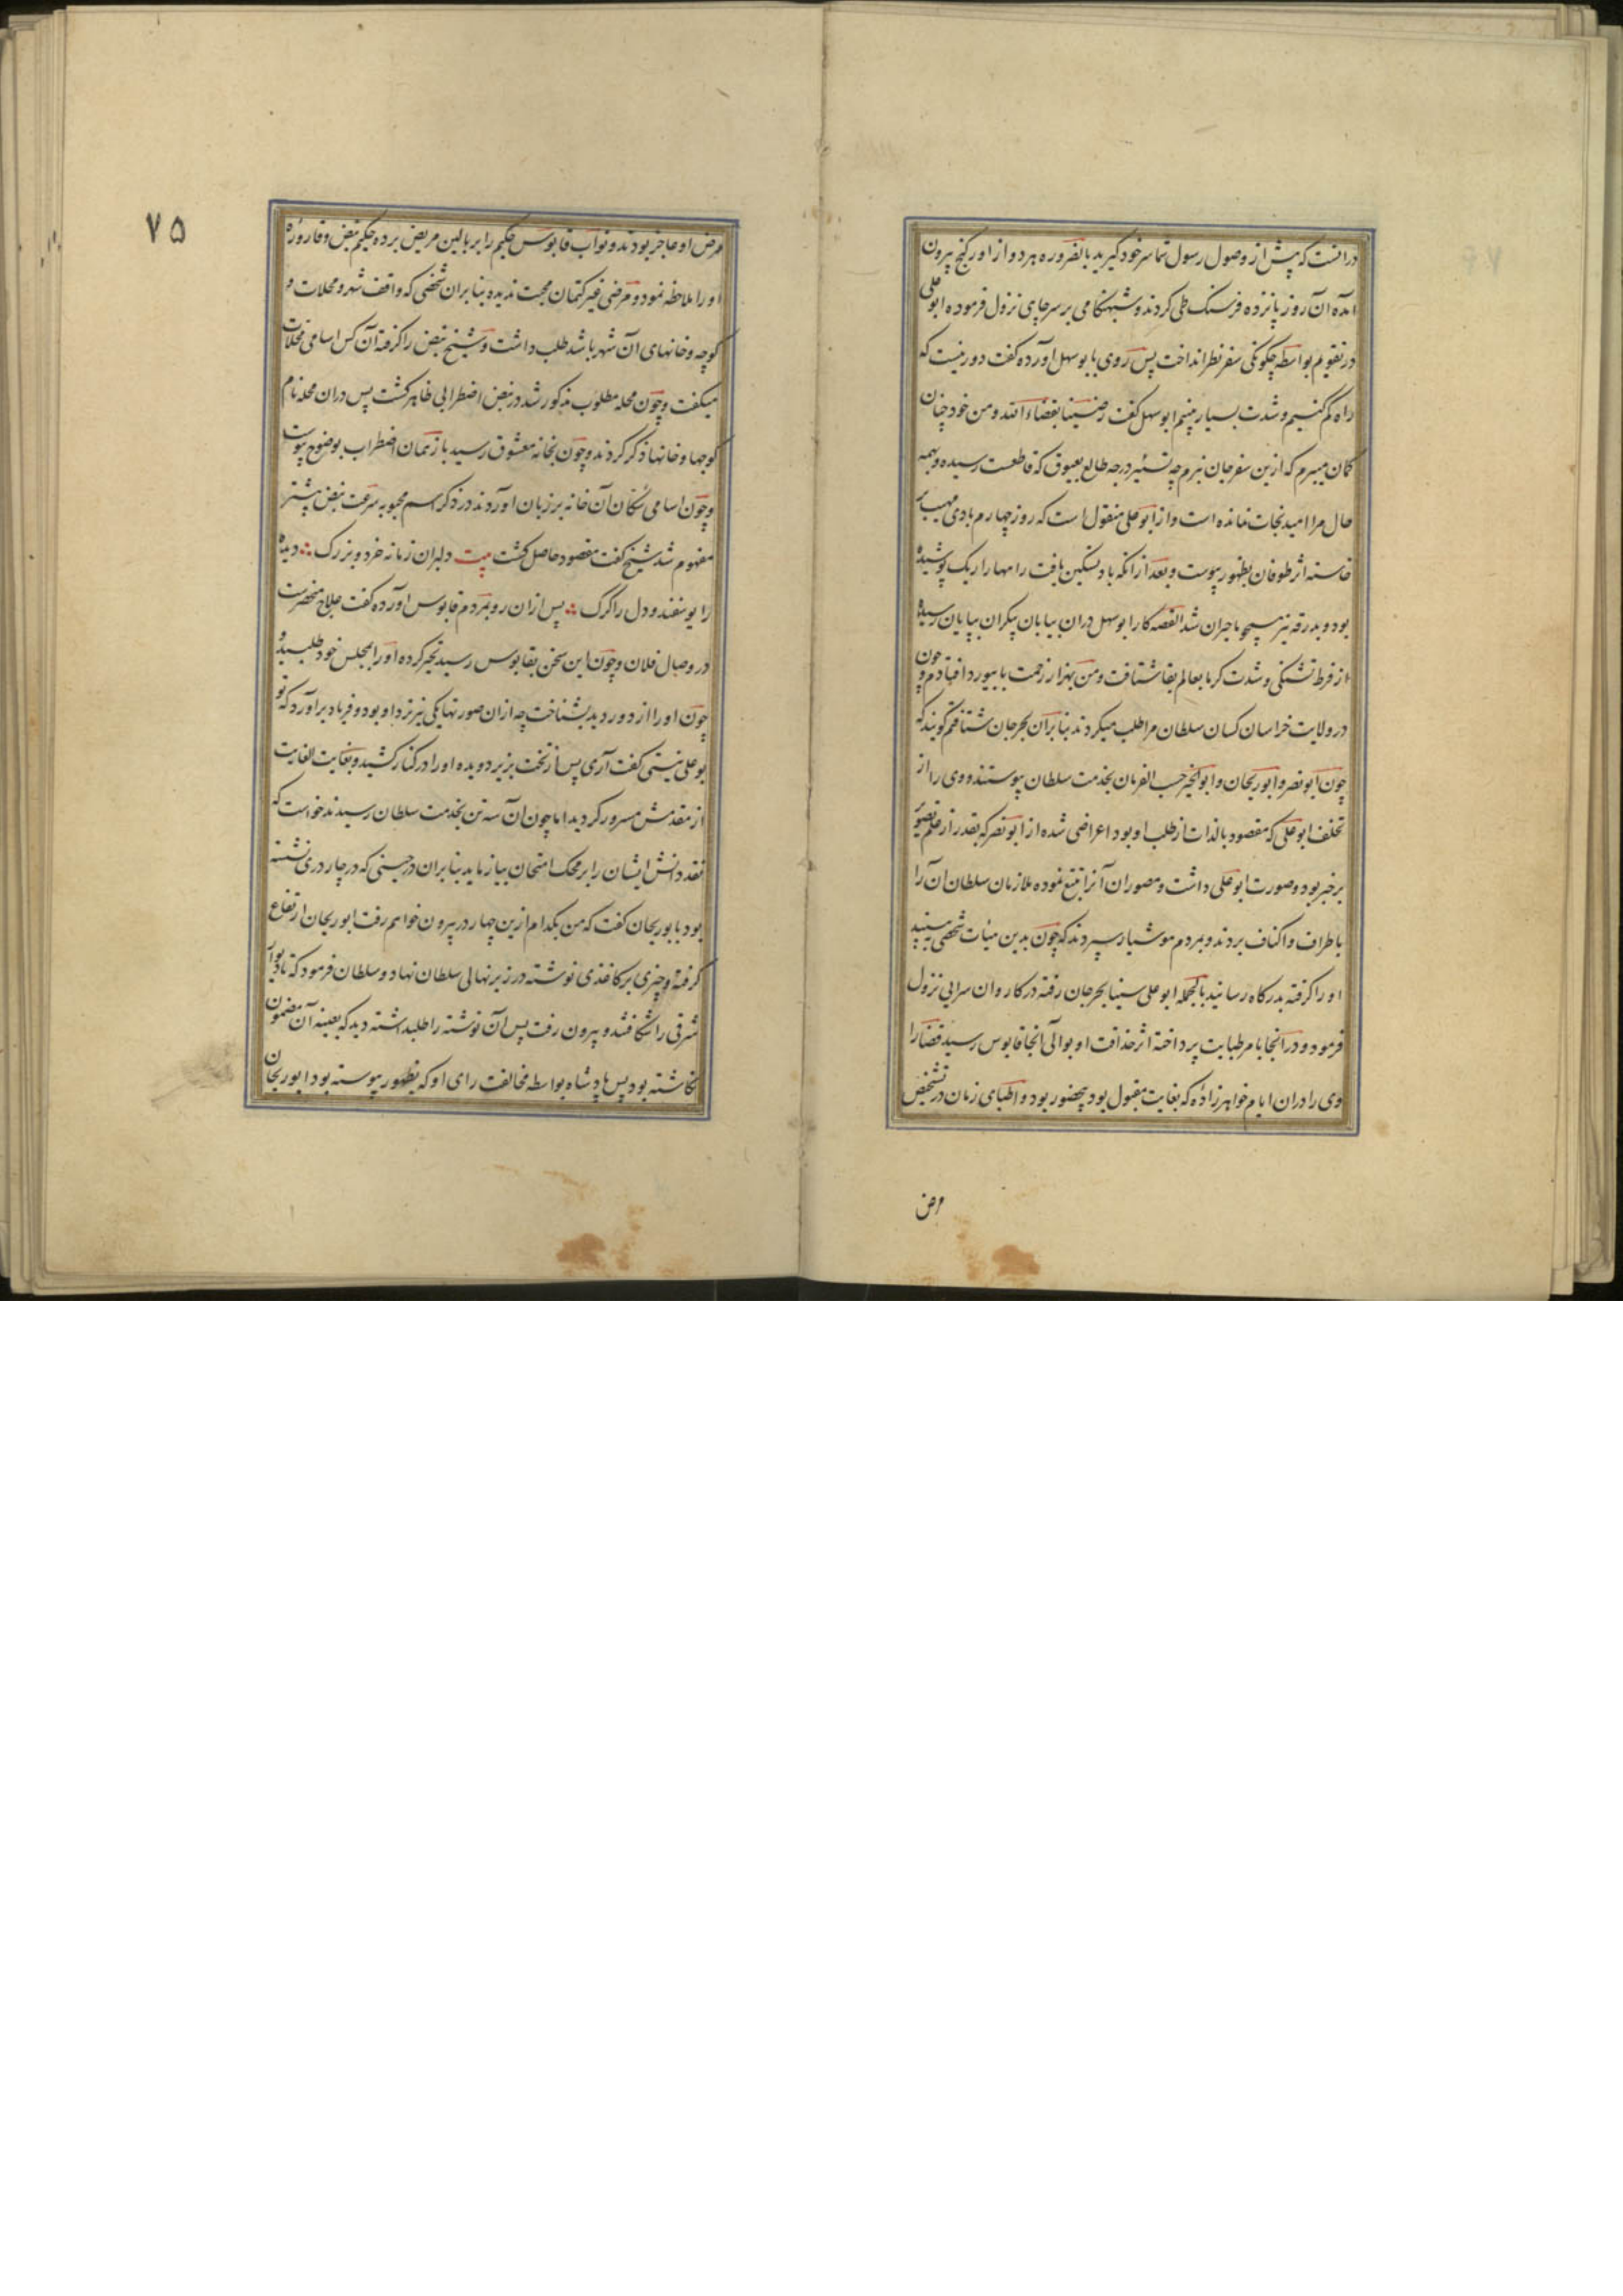 درانست که پیش از وصول رسول شما سر خود گیرید بالضروره هر دو از اورکنج بیرون
آمده آن روز پانزده فرسنک طی کردند و شبهنکامی بر سر چاهی نزول فرموده ابو علی
در تقویم بواسطه چکونکی سفر نظر انداخت پس روی بابو سهل آورده کفت دور نیست که
راه کم کنیم و شدت بسیار بینیم ابو سهل کفت رضینا بقضاء الله و من خود چنان
کمان میبرم که ازین سفر جان نبرم چه تسییر درجه طالع بعیوق که قاطعست رسیده و بهمه
حال مرا امید نجات نمانده است و از ابو علی منقول است که روز چهارم بادی مهیب
خاسته اثر طوفان بظهور پیوست و بعد از انکه باد تسکین یافت راهها را ریک پوشیده
بود و بدرقه نیز همچو ما حیران شد القصه کار ابو سهل در ان بیابان بیکران بپایان رسیده
از فرط تشنکی و شدت کرما بعالم بقا شتافت و من بهزار زحمت بابیورد افتادم و چون
در ولایت خراسان کسان سلطان مرا طلب میکردند بنابران بجرجان شتافتم کویند که
چون ابو نصر و ابو ریحان و ابو الخیر حسب الفرمان بخدمت سلطان پیوستند و وی را از
تخلف ابو علی که مقصود بالذات از طلب او بود اعراضی شده از ابو نصر که بقدر از علم تصویر
بر خبر بود و صورت ابو علی داشت و مصوران آنرا تتبع نموده ملازمان سلطان آن را
باطراف و اکناف بردند و بمردم هوشیار سپردند که چون بدین هیأت شخصی به بینید
او را کرفته بدرکاه رسانید بالجمله ابو علی سینا بجرجان رفته در کاروان سرایی نزول
فرمود و در انجا بامر طبابت پرداخته اثر حذاقت او بوالی آنجا قابوس رسید قضا را
وی را دران ایام خواهرزاده که بغایت مقبول بود بیحضور بود و اطبای زمان در تشخیص
مرض
۷۵
مرض او عاجز بودند و نواب قابوس حکیم را بر بالین مریض برده حکیم نبض و قاروره
او را ملاحظه نمود و مرضی غیر کتمان محبت ندیده بنابران شخصی که واقف شهر و محلات و
کوچه و خانهای آن شهر باشد طلب داشت و شیخ نبض را کرفته آن کس اسامی محلات
میکفت و چون محله مطلوب مذکور شد در نبض اضطرابی ظاهر کشت پس دران محله نام
کوچها و خانها ذکر کردند و چون بخانه معشوق رسید باز همان اضطراب بوضوح پیوست
و چون اسامی سکان آن خانه بر زبان آوردند در ذکر اسم محبوبه سرعت نبض بیشتر
مفهوم شد شیخ کفت مقصود حاصل کشت بیت دلبران زمانه خرد و بزرک ∴ دیده
را یوسفند و دل را کرک ∴ پس ازان رو بمردم قابوس آورده کفت علاج منحصرست
در وصال فلان و چون این سخن بقابوس رسید تحیر کرده او را بمجلس خود طلبید و
چون او را از دور دید بشناخت چه ازان صورتها یکی نیز نزد او بود و فریاد برآورد که تو
بو علی نیستی کفت آری پس از تخت بزیر دویده او را در کنار کشید و بغایت الغایت
از مقدمش مسرور کردید اما چون آن سه تن بخدمت سلطان رسیدند خواست که
نقد دانش ایشان را بر محک امتحان بیازماید بنابران در حینی که در چار دری نشسته
بود بابوریحان کفت که من بکدام ازین چهار در بیرون خواهم رفت ابو ریحان ارتفاع
کرفته و چیزی بر کاغذی نوشته در زیر نهالی سلطان نهاد و سلطان فرمود که تا دیوار
شرقی را شکافتند و بیرون رفت پس آن نوشته را طلبداشته دید که بعینه آن مضمون
نکاشته بود پس پادشاه بواسطه مخالفت رای او که بظهور پیوسته بود ابو ریحان